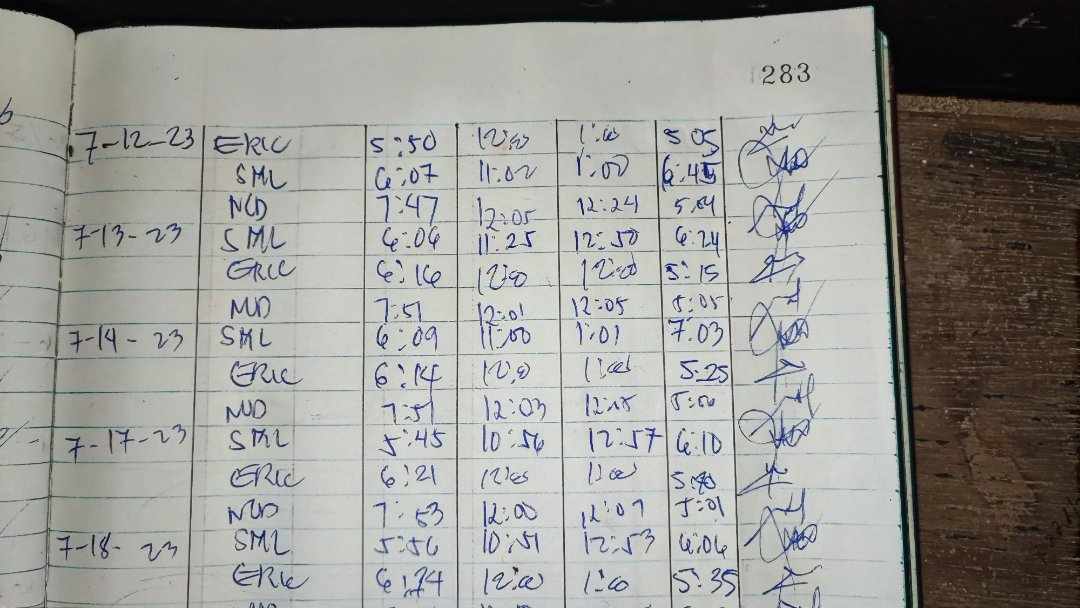 283
7-12-23 ERIC 5:50 12:00 1:00 5 05
SML 6:07 11:02 1:00 6:45
NUD 7:47 12:05 12:24 5:04
7-13-23 SML 6:06 11:25 12:50 6:24
ERIC 6:16 12:00 12:00 5:15
NUD 7:51 12:01 12:05 5:05
7-14-23 SML 6:09 11:00 1:01 7:03
ERIC 6:14 12:00 1:00 5:25
NUD 7:51 12:03
7-17-23 SML 5:45 10:56 12:57 6:10
ERIC 6:21 12:00 1:00
NUD 7:53 12:00 12:07 5:01
7-18-23 SML 5:56 10:51 12:53 6:06
ERIC 12:00 1:00 5:35